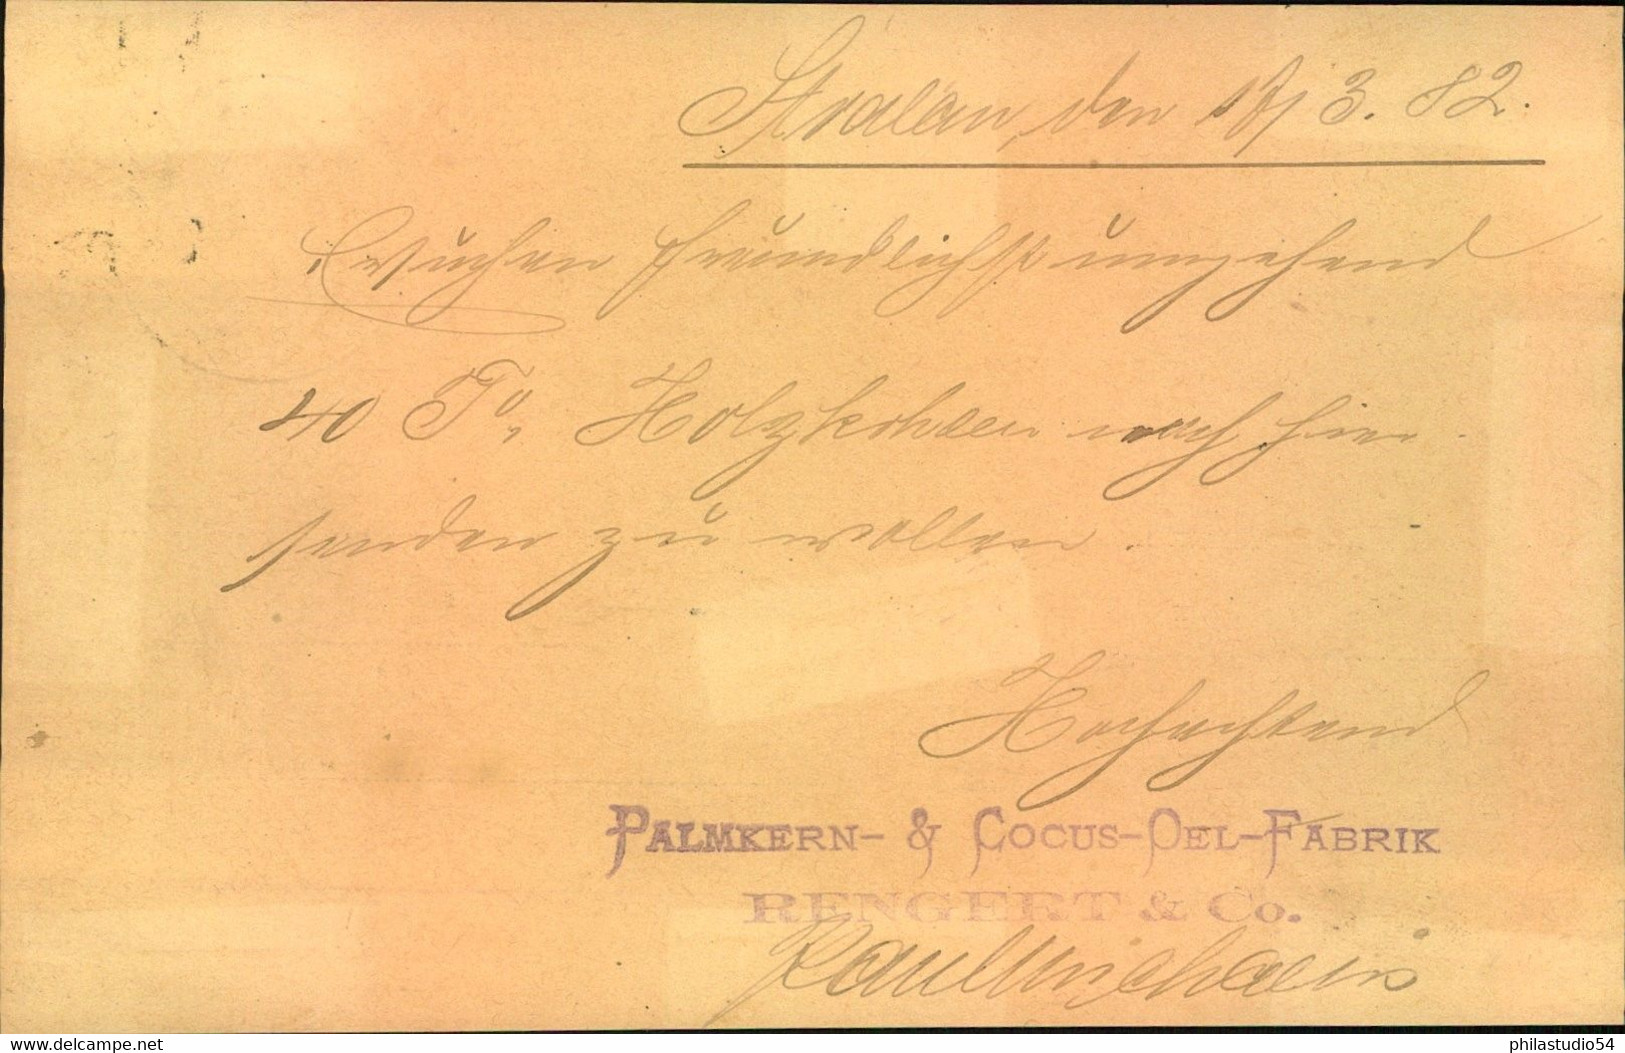 Stralau, den 18/3. 82.
Ersuchen freundlichst umgehend
40 To. Holzkohlen nach hier
senden zu wollen.
Hochachtend
PALMKERN- & COCUS-OEL-FABRIK
RENGERT & Co.
Paul Michaelis
delcampe.net
philastudio54